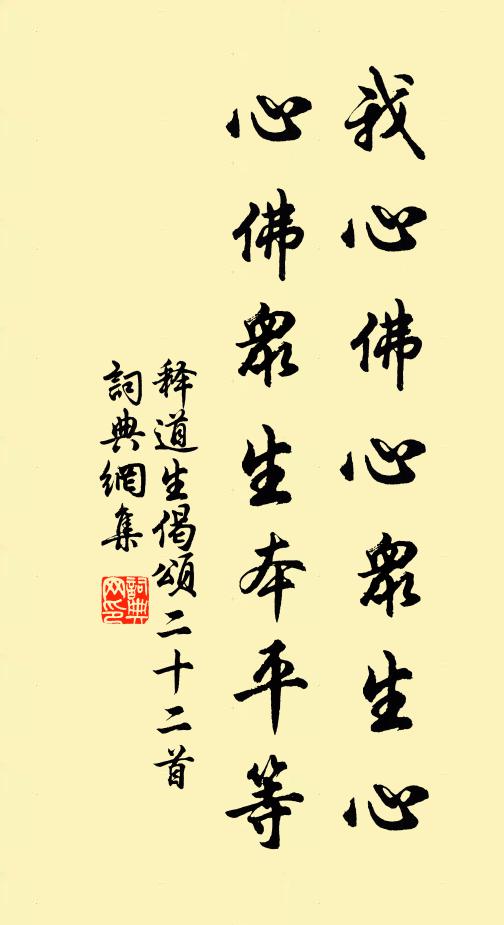 我心佛心衆生心
心佛衆生本平等
释道生偈頌二十二首
詞典網集
詞典網印